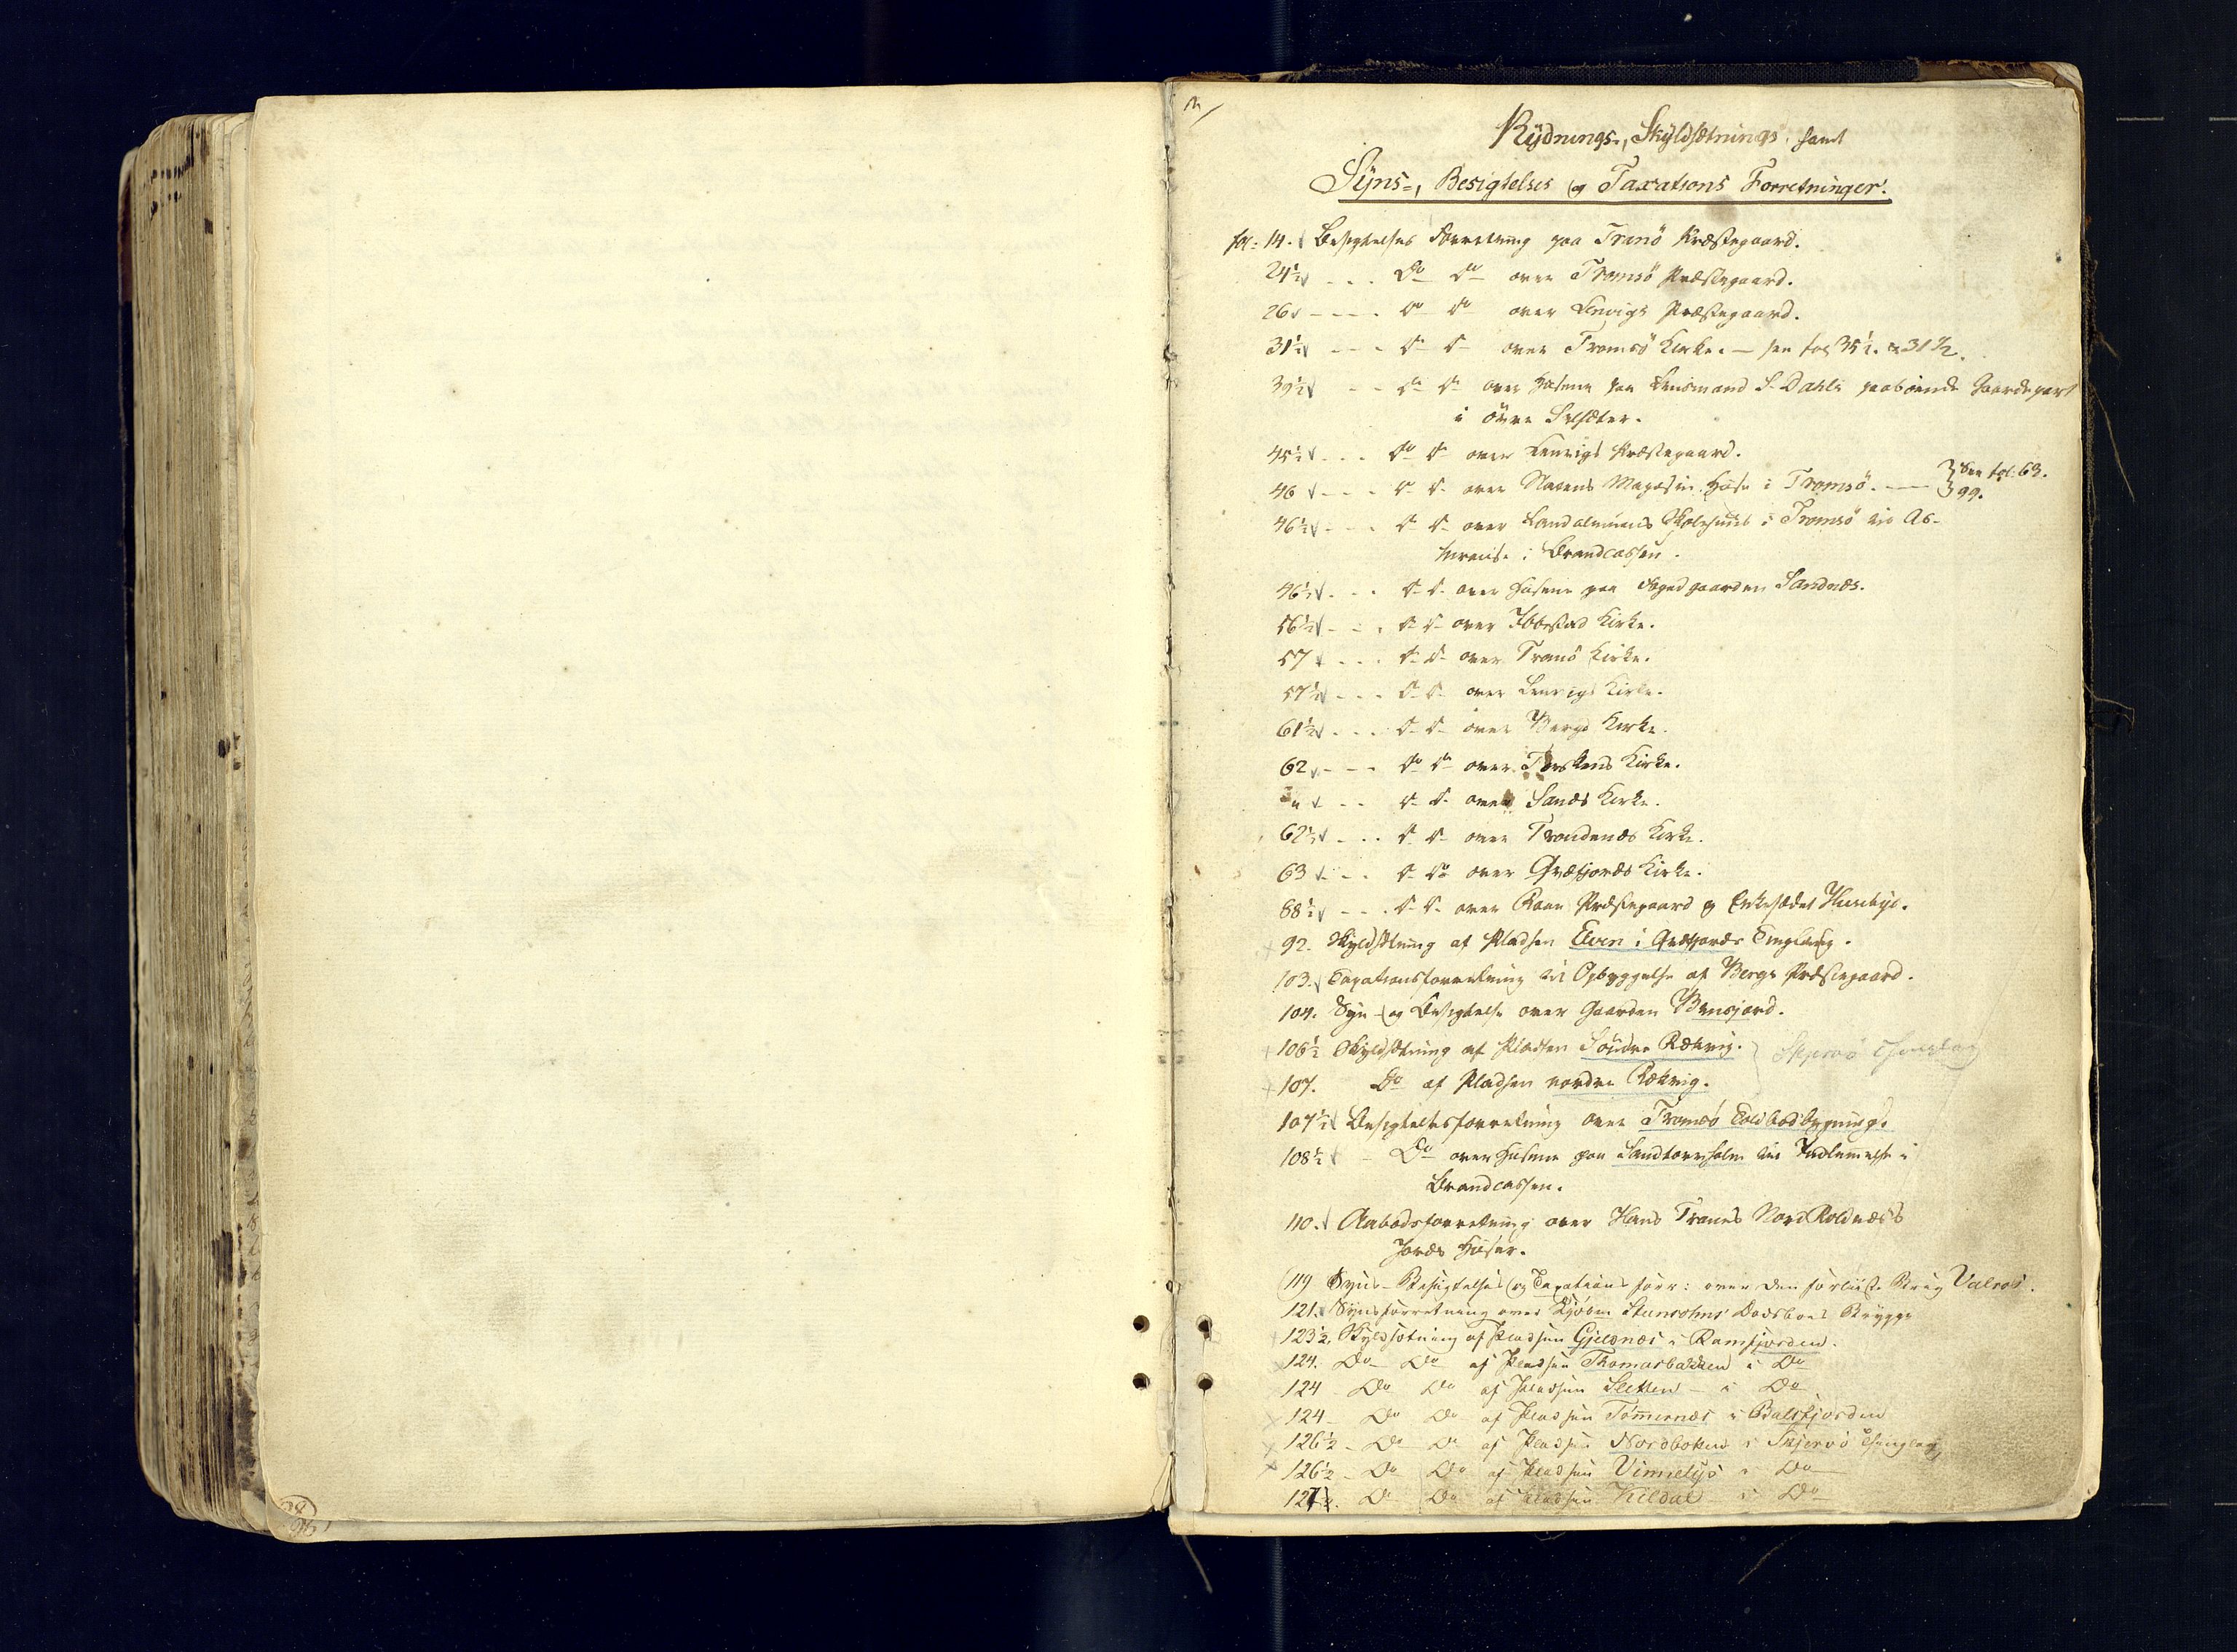 Rydnings-, Skyldsætnings, samt
Syns-, Besigtelses og Taxations Forretninger.
fol: 14. Besigtelses Forretning paa Tranö Præstegaard.
24½ - - - Do Do over Tromsö Præstegaard.
26 - - - - Do Do over Lenvigs Præstegaard.
31½ - - - Do Do over Tromsö Kirke. — see fol 35½. & 31½.
39½ - - Do Do over Husene paa Lensmand S. Dahls paaboende Gaardepart
i övre Selsæter.
45½ - - - Do Do over Lenvigs Præstegaard.
46 - - - Do Do over Statens Magasin Huse i Tromsö. — } See fol. 63. 99.
46½ - - - Do Do over Landalmuens Skolehuus i Tromsö til As-
surance i Brandcassen.
46½ - - - Do Do over Husene paa Fogedgaarden Sandnæs.
56½ - - - Do Do over Ibbestad Kirke.
57 - - - Do Do over Tranö Kirke.
57½ - - - Do Do over Lenvigs Kirke.
61½ - - - Do Do over Bergs Kirke.
62 - - - Do Do over Torskens Kirke.
" - - Do Do over Sands Kirke.
62½ - - - Do Do over Trondenæs Kirke.
63 - - - Do Do over Qvæfjords Kirke.
88½ - - - Do Do over Præstegaard og Enkesædet Huusbye.
92. Skyldsætning af Pladsen Elven i Qvæfjords Tinglaug.
103. Taxationsforretning til Opbyggelse af Bergs Præstegaard.
104. Syn- og Besigtelse over Gaarden Bensjord.
106½ Skyldsætning af Pladsen Söndre Rækvig. } Skjervö Thinglag
107. Do af Pladsen nordre Rækvig.
107½ Besigtelsesforretning over Tromsö Toldbodbygning.
108½ - Do over Husene paa Sandtorvholm til Indlemmelse i
Brandcassen.
110. Aabodsforretning over Hans Tranes Nord Roldnæss
Jords Huser.
119 Syns- Besigtelses og Taxations forr: over den forliiste Brig Valros.
121. Synsforretning over Kjöbm Stensohns Dødsboes Brygge
123½. Skyldsætning af Pladsen Gjeesnæs i Ramfjorden.
124. Do Do af Pladsen Thomasbakken i Do
124 Do Do af Pladsen Sletten - i Do
124 - Do Do af Pladsen Tömmernæs i Balsfjorden
126½ - Do Do af Pladsen Nordbotten i Skjervö Thinglag,
126½ - Do Do af Pladsen Vinnelys i Do
127½. Do Do af Pladsen Kildal i Do